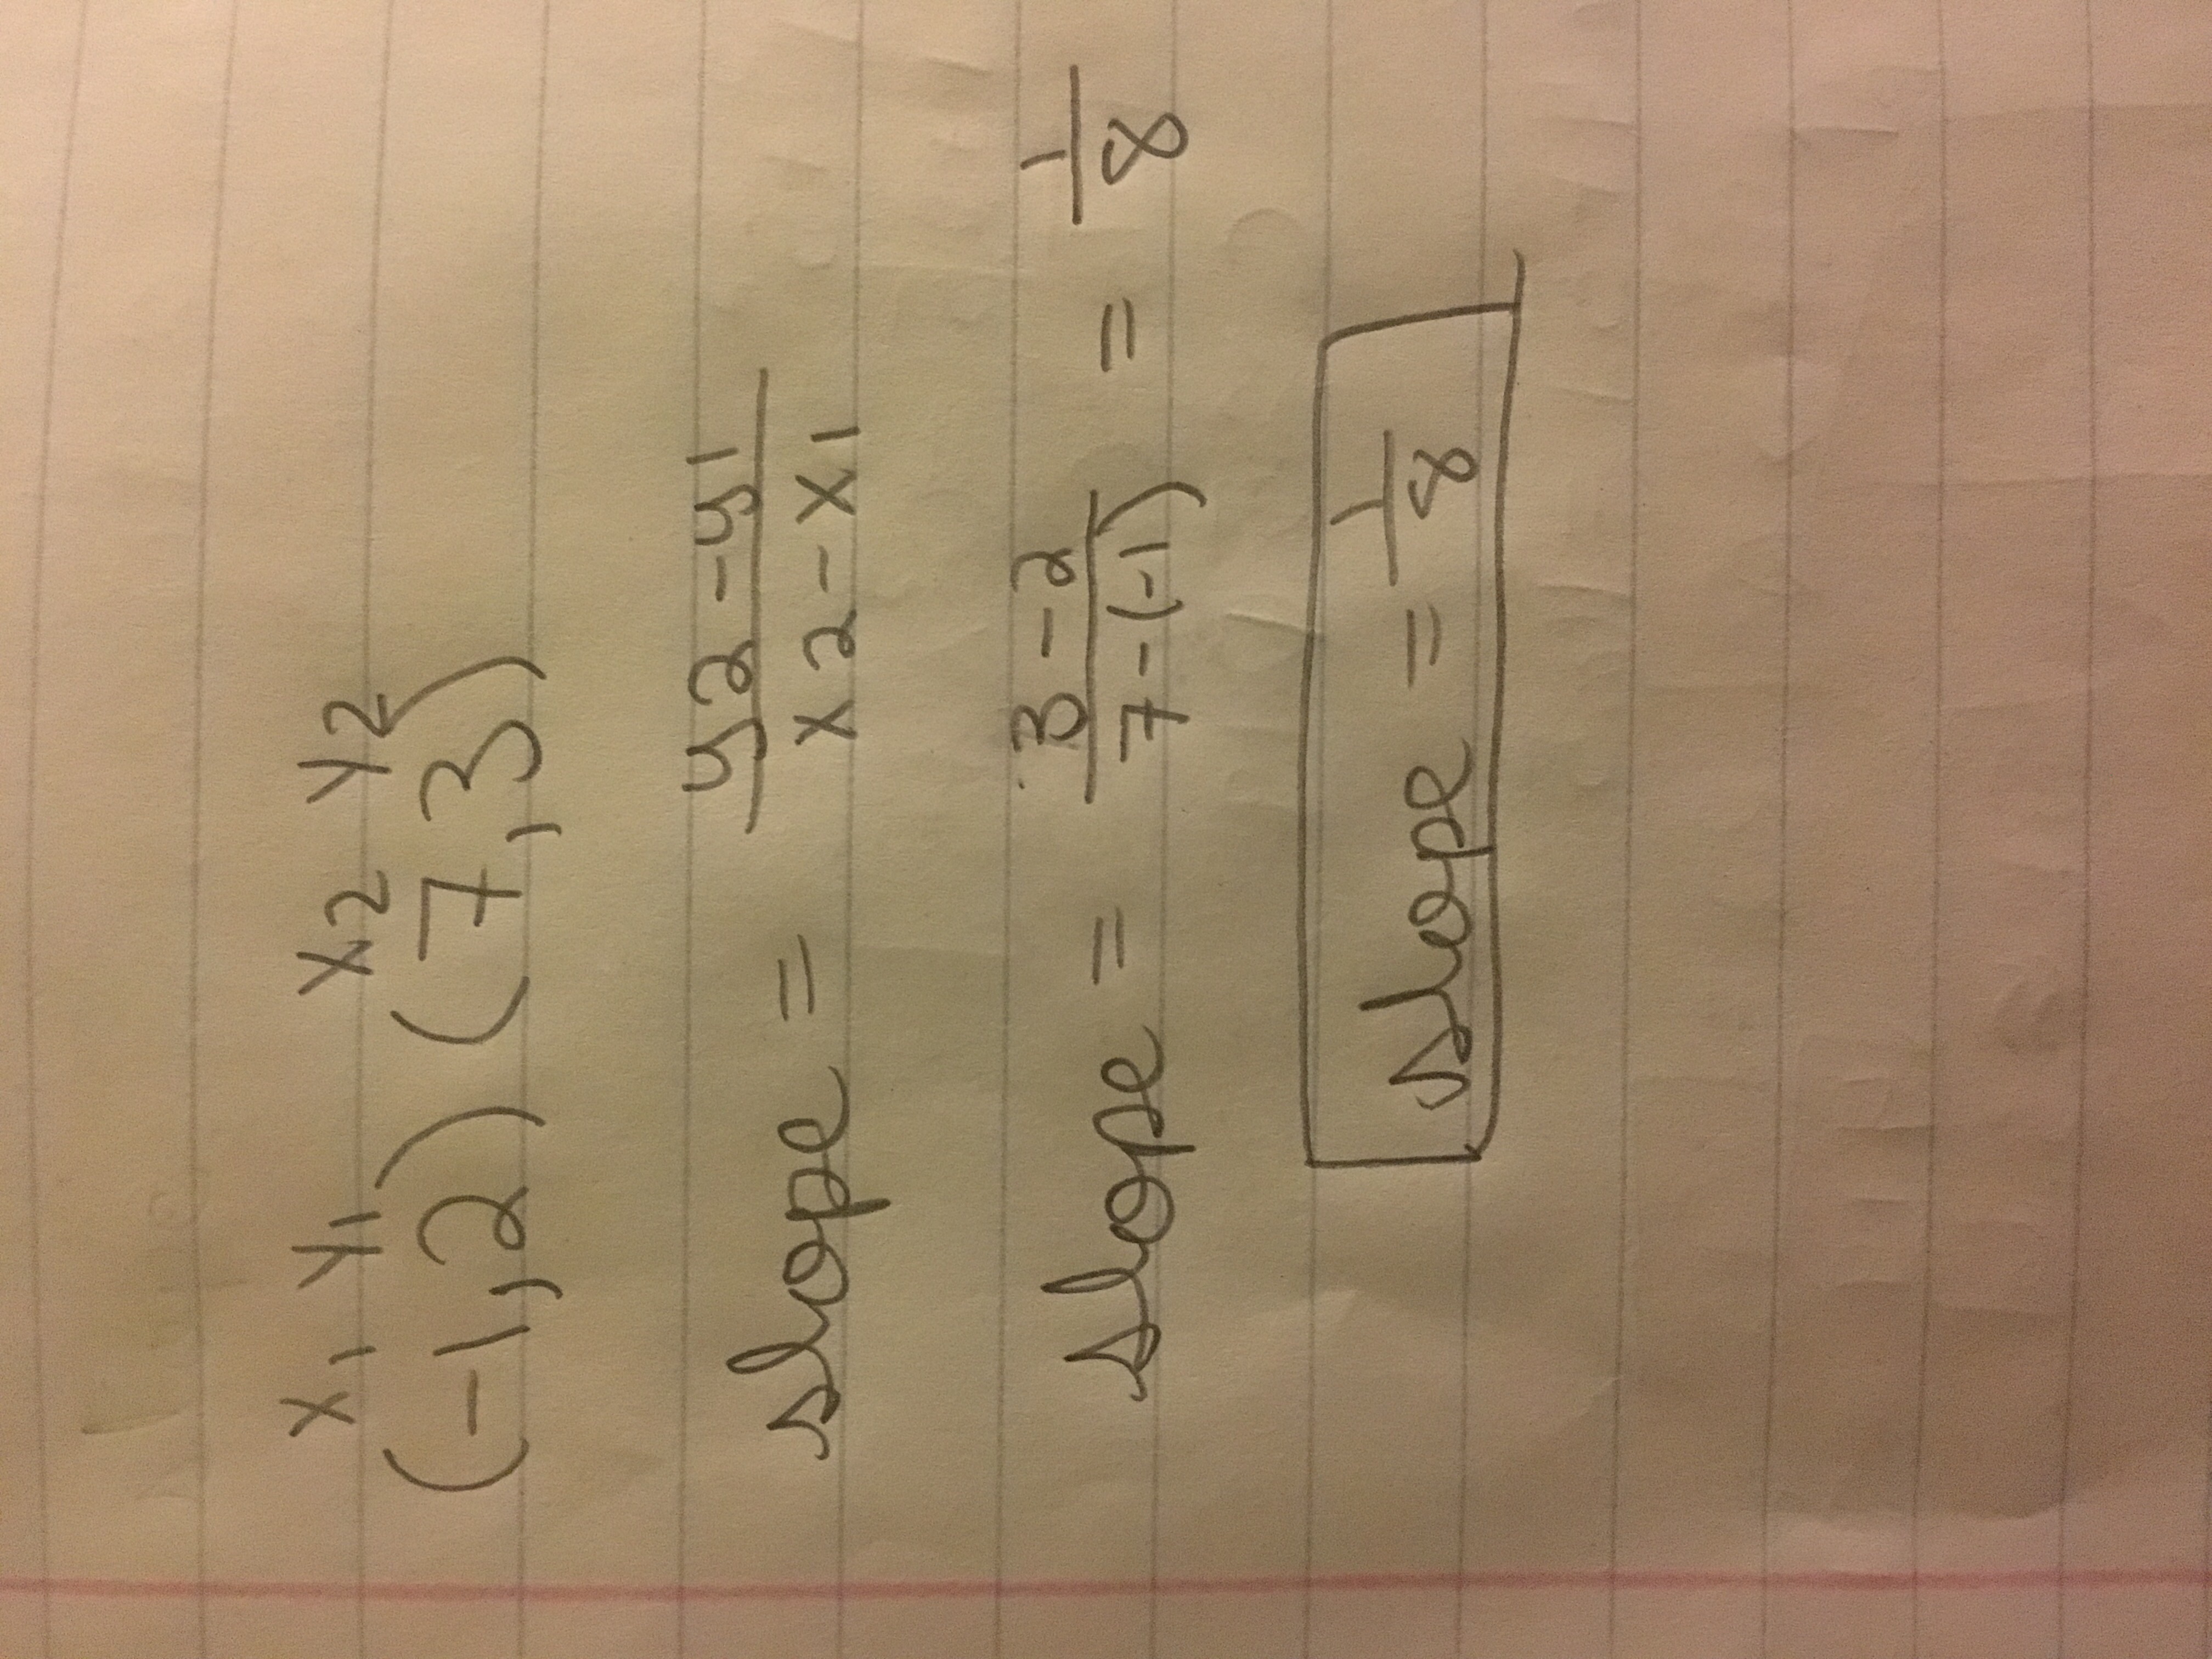 x1 y1 x2 y2
(-1,2) (7,3)
slope = y2-y1
x2-x1
slope = 3-2 = 1
7-(-1) 8
slope = 1
8